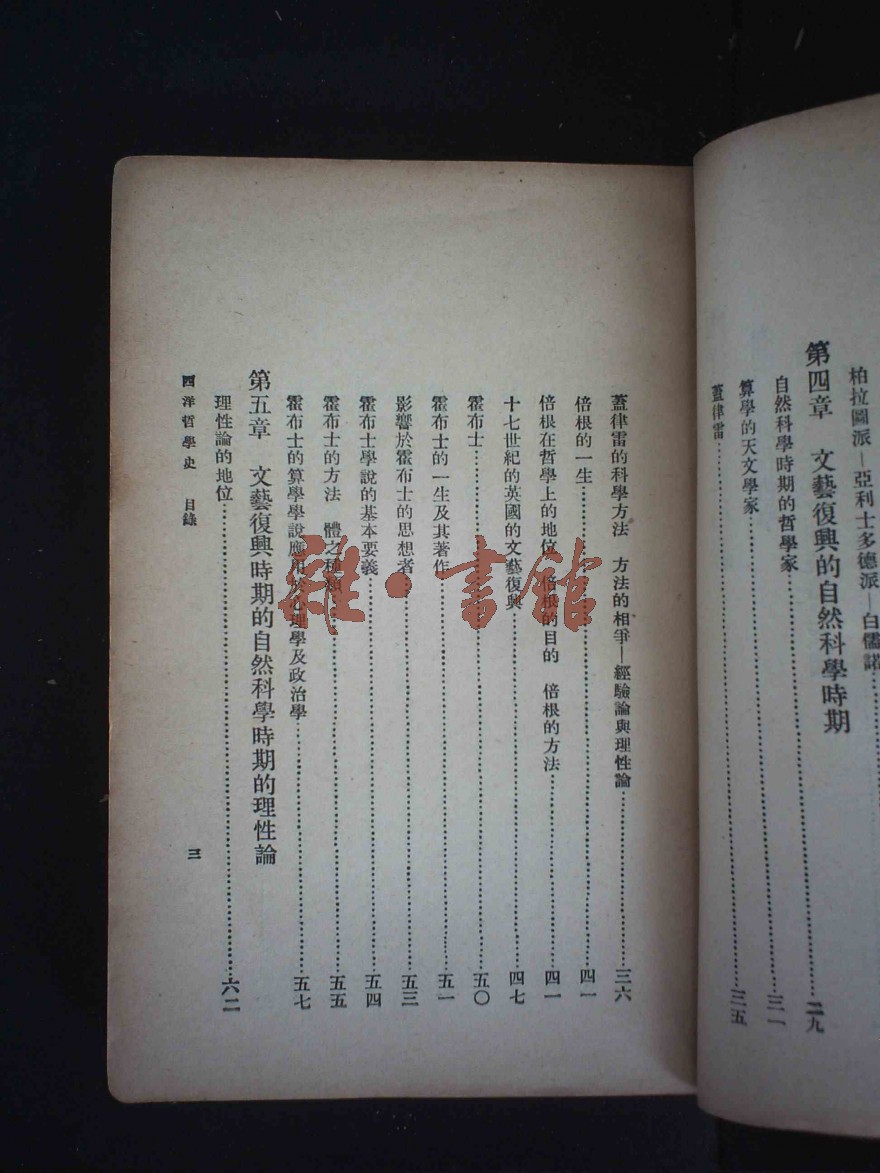 柏拉圖派—亞利士多德派—白儒諾
第四章　文藝復興的自然科學時期……二九
自然科學時期的哲學家……三一
算學的天文學家
蓋律雷……三五
蓋律雷的科學方法　方法的相爭—經驗論與理性論……三六
倍根的一生……四一
倍根在哲學上的地位　倍根的目的　倍根的方法……四一
十七世紀的英國的文藝復興……四七
霍布士……五〇
霍布士的一生及其著作……五一
影響於霍布士的思想者……五三
霍布士學說的基本要義……五四
霍布士的方法　體之種類……五五
霍布士的算學學說應用於心理學及政治學……五七
第五章　文藝復興時期的自然科學時期的理性論
理性論的地位……六二
西洋哲學史　目錄
三
雜·書館